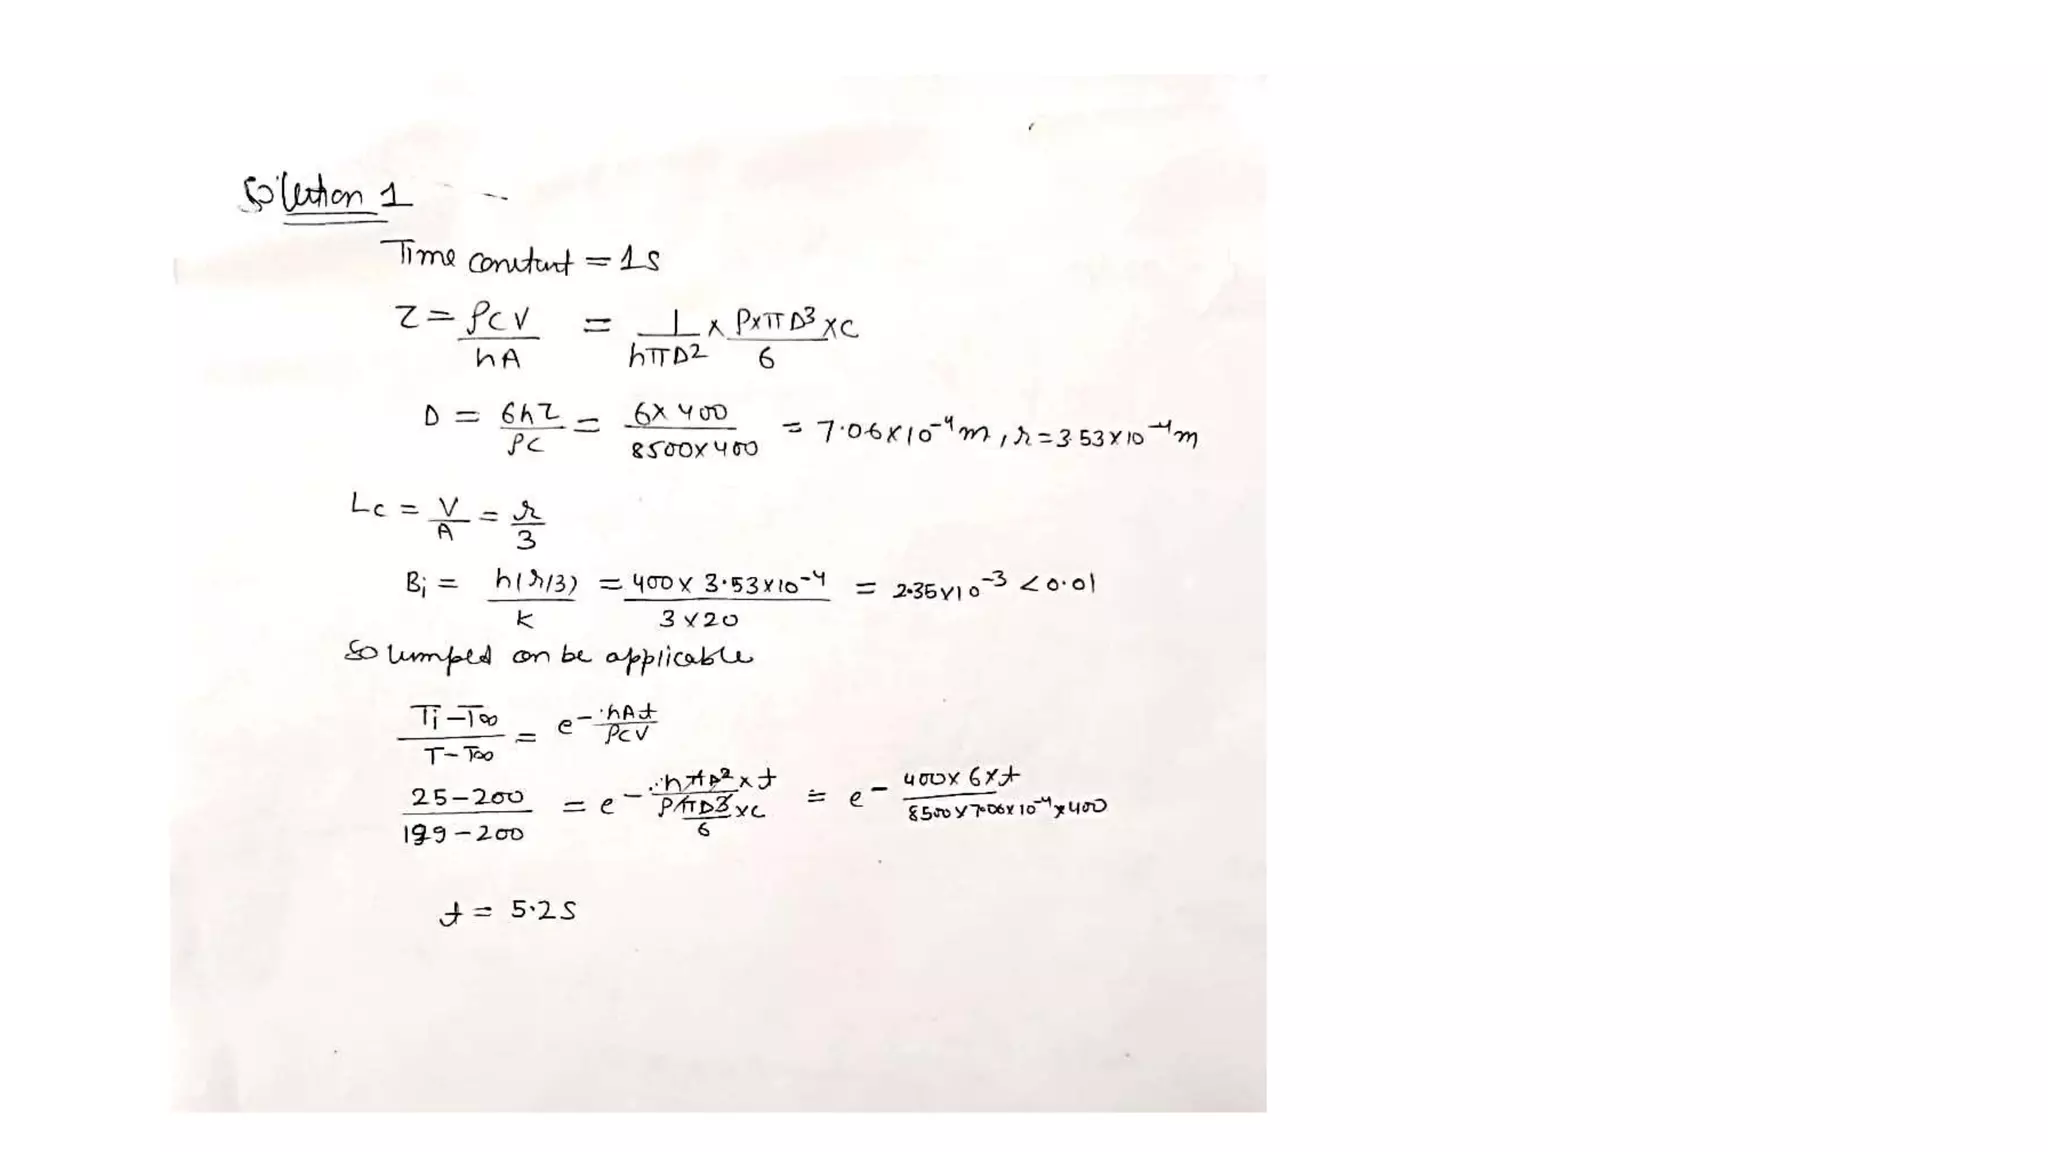 Solution 1
Time constant = 1s
τ = ρcV/hA = 1/hπD² × ρ×πD³×c/6
D = 6hτ/ρc = 6×400/8500×400 = 7.06×10⁻⁴m, r = 3.53×10⁻⁴m
Lc = V/A = r/3
Bi = h(r/3)/k = 400×3.53×10⁻⁴/3×20 = 2.35×10⁻³ < 0.01
So lumped can be applicable
Ti-T∞/T-T∞ = e^-hAt/ρcV
25-200/199-200 = e^-hπD²×t/ρπD³×c/6 = e^-400×6×t/8500×7.06×10⁻⁴×400
t = 5.2s